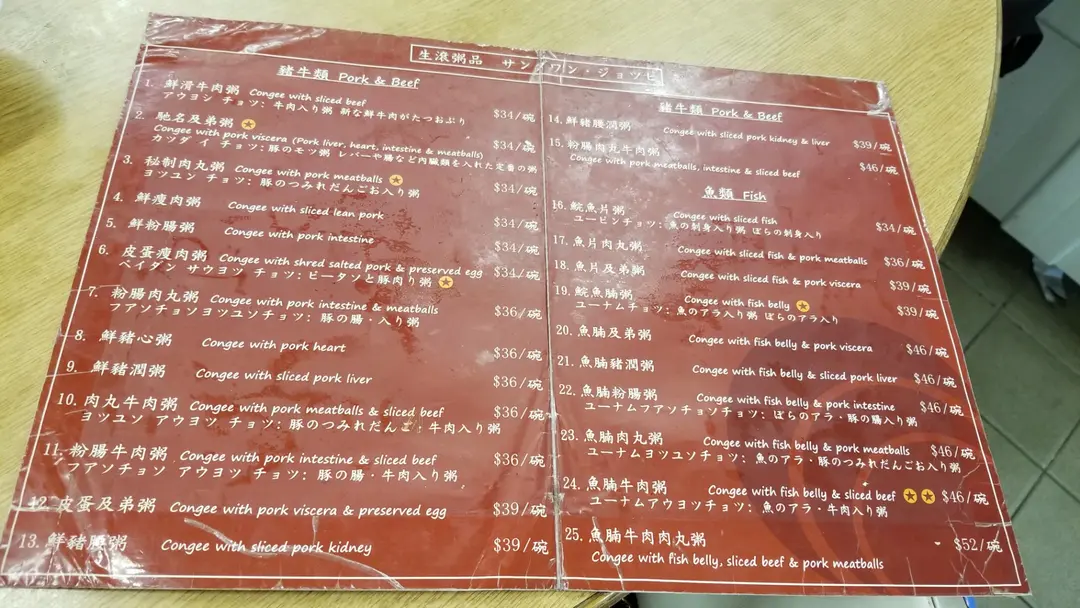 生滾粥品 サンクワン・ジョツヒ
豬牛類 Pork & Beef
1. 鮮滑牛肉粥 Congee with sliced beef
アウヨシ チョツ: 牛肉入り粥 新な鮮牛肉がたつおぶり $34/碗
2. 馳名及弟粥
Congee with pork viscera (Pork liver, heart, intestine & meatballs) $34/碗
カツダ イ チョツ: 豚のモツ粥 レバーや腸など内臓類を入れた定番の粥
3. 秘制肉丸粥 Congee with pork meatballs
ヨツユン チョツ: 豚のつみれだんごお入り粥 $34/碗
4. 鮮瘦肉粥 Congee with sliced lean pork $34/碗
5. 鮮粉腸粥 Congee with pork intestine $34/碗
6. 皮蛋瘦肉粥 Congee with shred salted pork & preserved egg $34/碗
ペイダン サウヨツ チョツ: ピータンと豚肉り粥
7. 粉腸肉丸粥 Congee with pork intestine & meatballs $36/碗
フアソチョソヨツユソチョツ: 豚の腸・入り粥
8. 鮮豬心粥 Congee with pork heart $36/碗
9. 鮮豬潤粥 Congee with sliced pork liver $36/碗
10. 肉丸牛肉粥 Congee with pork meatballs & sliced beef $36/碗
ヨツユソ アウヨツ チョツ: 豚のつみれだんご・牛肉入り粥
11. 粉腸牛肉粥 Congee with pork intestine & sliced beef $36/碗
フアソチョソ アウヨツ チョツ: 豚の腸・牛肉入り粥
12 皮蛋及弟粥 Congee with pork viscera & preserved egg $39/碗
13. 鮮豬腰粥 Congee with sliced pork kidney $39/碗
豬牛類 Pork & Beef
14. 鮮豬腰潤粥 Congee with sliced pork kidney & liver $39/碗
15. 粉腸肉丸牛肉粥
Congee with pork meatballs, intestine & sliced beef $46/碗
魚類 Fish
16. 鯇魚片粥 Congee with sliced fish
ユーピンチョツ: 魚の刺身入り粥 ぼらの刺身入り $34/碗
17. 魚片肉丸粥 Congee with sliced fish & pork meatballs $36/碗
18. 魚片及弟粥 Congee with sliced fish & pork viscera $39/碗
19. 鯇魚腩粥 Congee with fish belly
ユーナムチョツ: 魚のアラ入り粥 ぼらのアラ入り $39/碗
20. 魚腩及弟粥 Congee with fish belly & pork viscera $46/碗
21. 魚腩豬潤粥 Congee with fish belly & sliced pork liver $46/碗
22. 魚腩粉腸粥 Congee with fish belly & pork intestine $46/碗
ユーナムフアソチョソチョツ: ぼらのアラ・豚の腸入り粥
23. 魚腩肉丸粥 Congee with fish belly & pork meatballs $46/碗
ユーナムヨツユソチョツ: 魚のアラ・豚のつみれだんごお入り粥
24. 魚腩牛肉粥 Congee with fish belly & sliced beef $46/碗
ユーナムアウヨツチョツ: 魚のアラ・牛肉入り粥
25. 魚腩牛肉肉丸粥 $52/碗
Congee with fish belly, sliced beef & pork meatballs